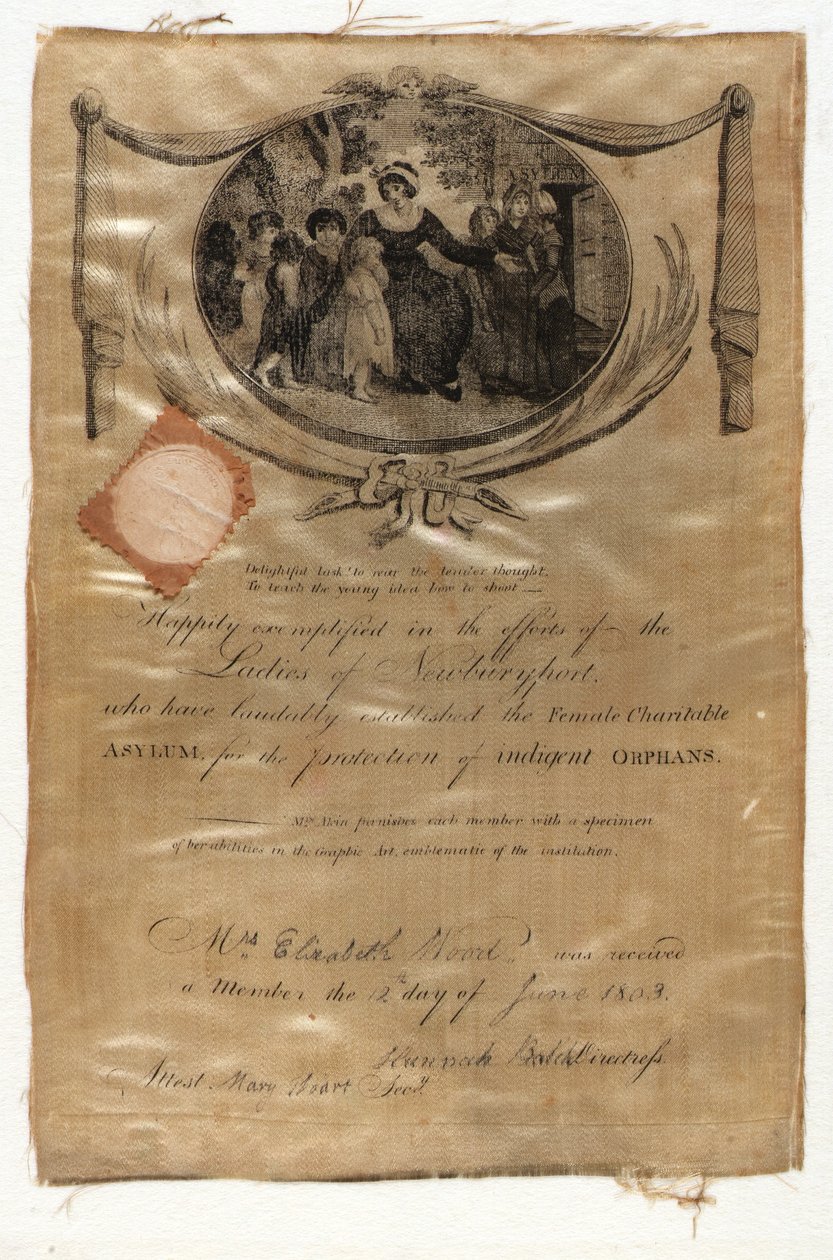 ASYLUM
Delightful task! to rear the tender thought,
To teach the young idea how to shoot —
Happily exemplified in the efforts of the
Ladies of Newburyport,
who have laudably established the Female Charitable
ASYLUM, for the protection of indigent ORPHANS.
Mrs. Akin furnishes each member with a specimen
of her abilities in the Graphic Art, emblematic of the institution.
Mrs. Elizabeth Wood, was received
a Member the 12th day of June 1803.
Hannah Balch Directress.
Attest. Mary Hoart Secy.